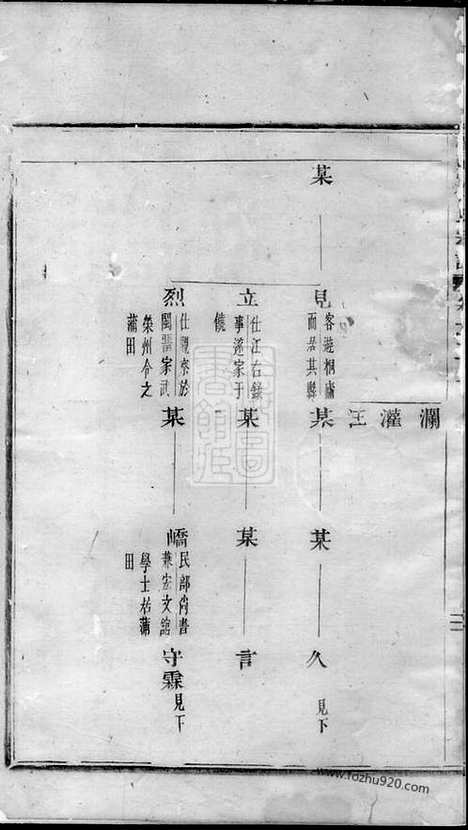 瀾
灌
某
見
客遊相廬
而居其縣
某
某
久
見下
立
仕江右錄
事遂家于
某
某
言
烈
仕觀察於
閩審家武
榮州今之
蒲田
某
嶠
民部尚書
兼宏文館
學士居蒲
田
守霖
見下
www.fozhu920.com